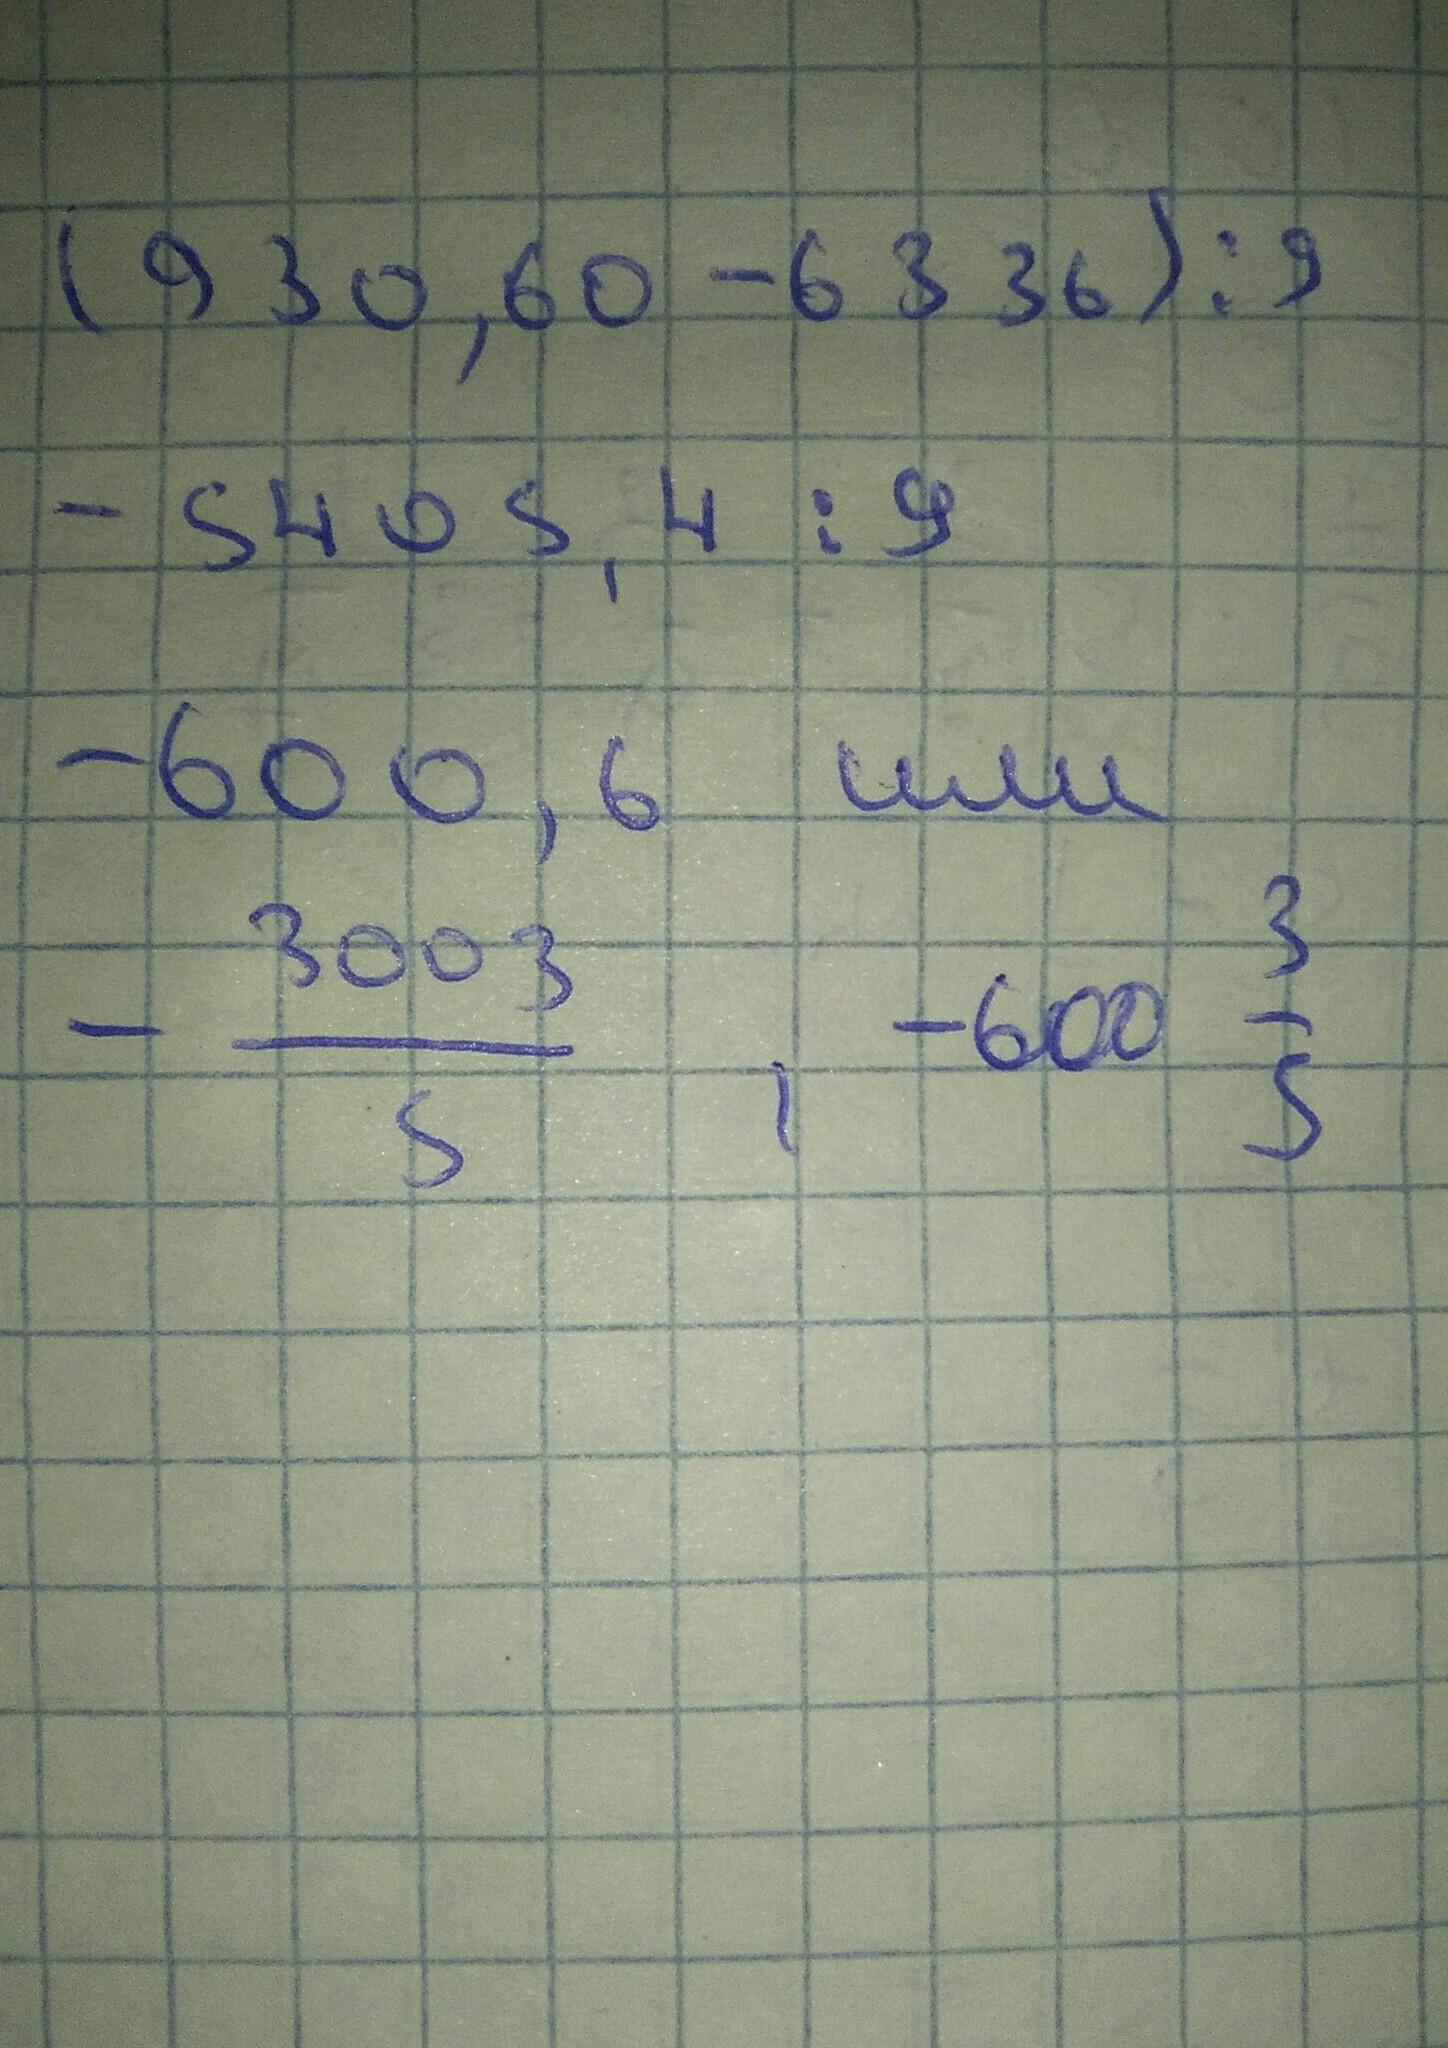 (930,60-6336):9
-5405,4:9
-600,6 или
-3003/5, -600 3/5